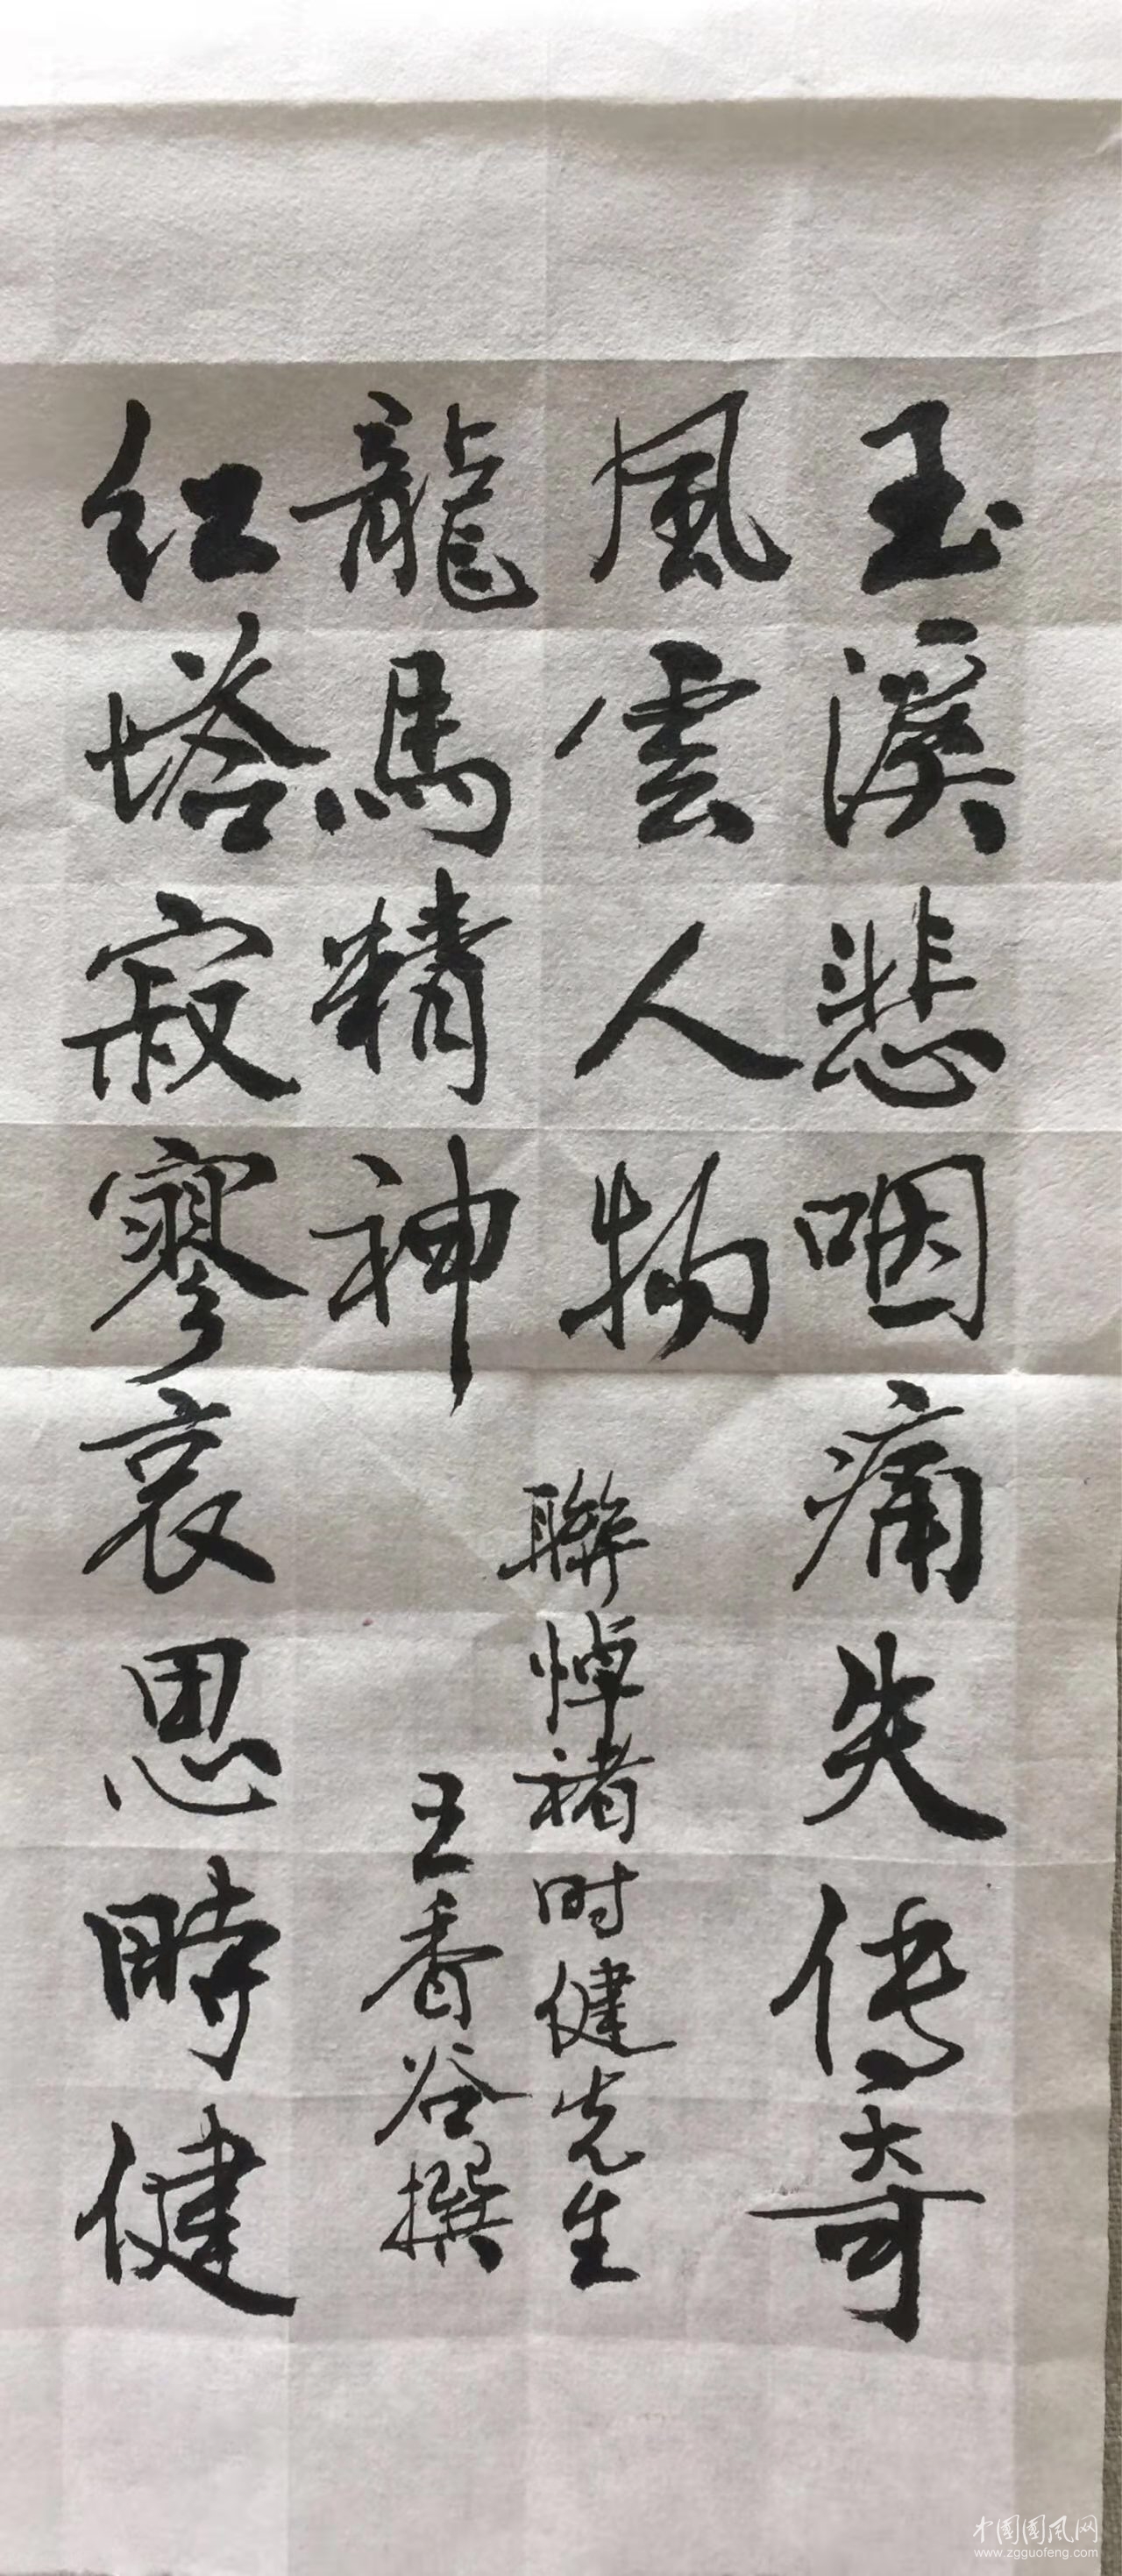 玉溪悲咽痛失传奇
風雲人物
红塔寂寥哀思時健
龍馬精神
聯悼褚时健先生
王香谷撰
中國國風网
www.zgguofeng.com